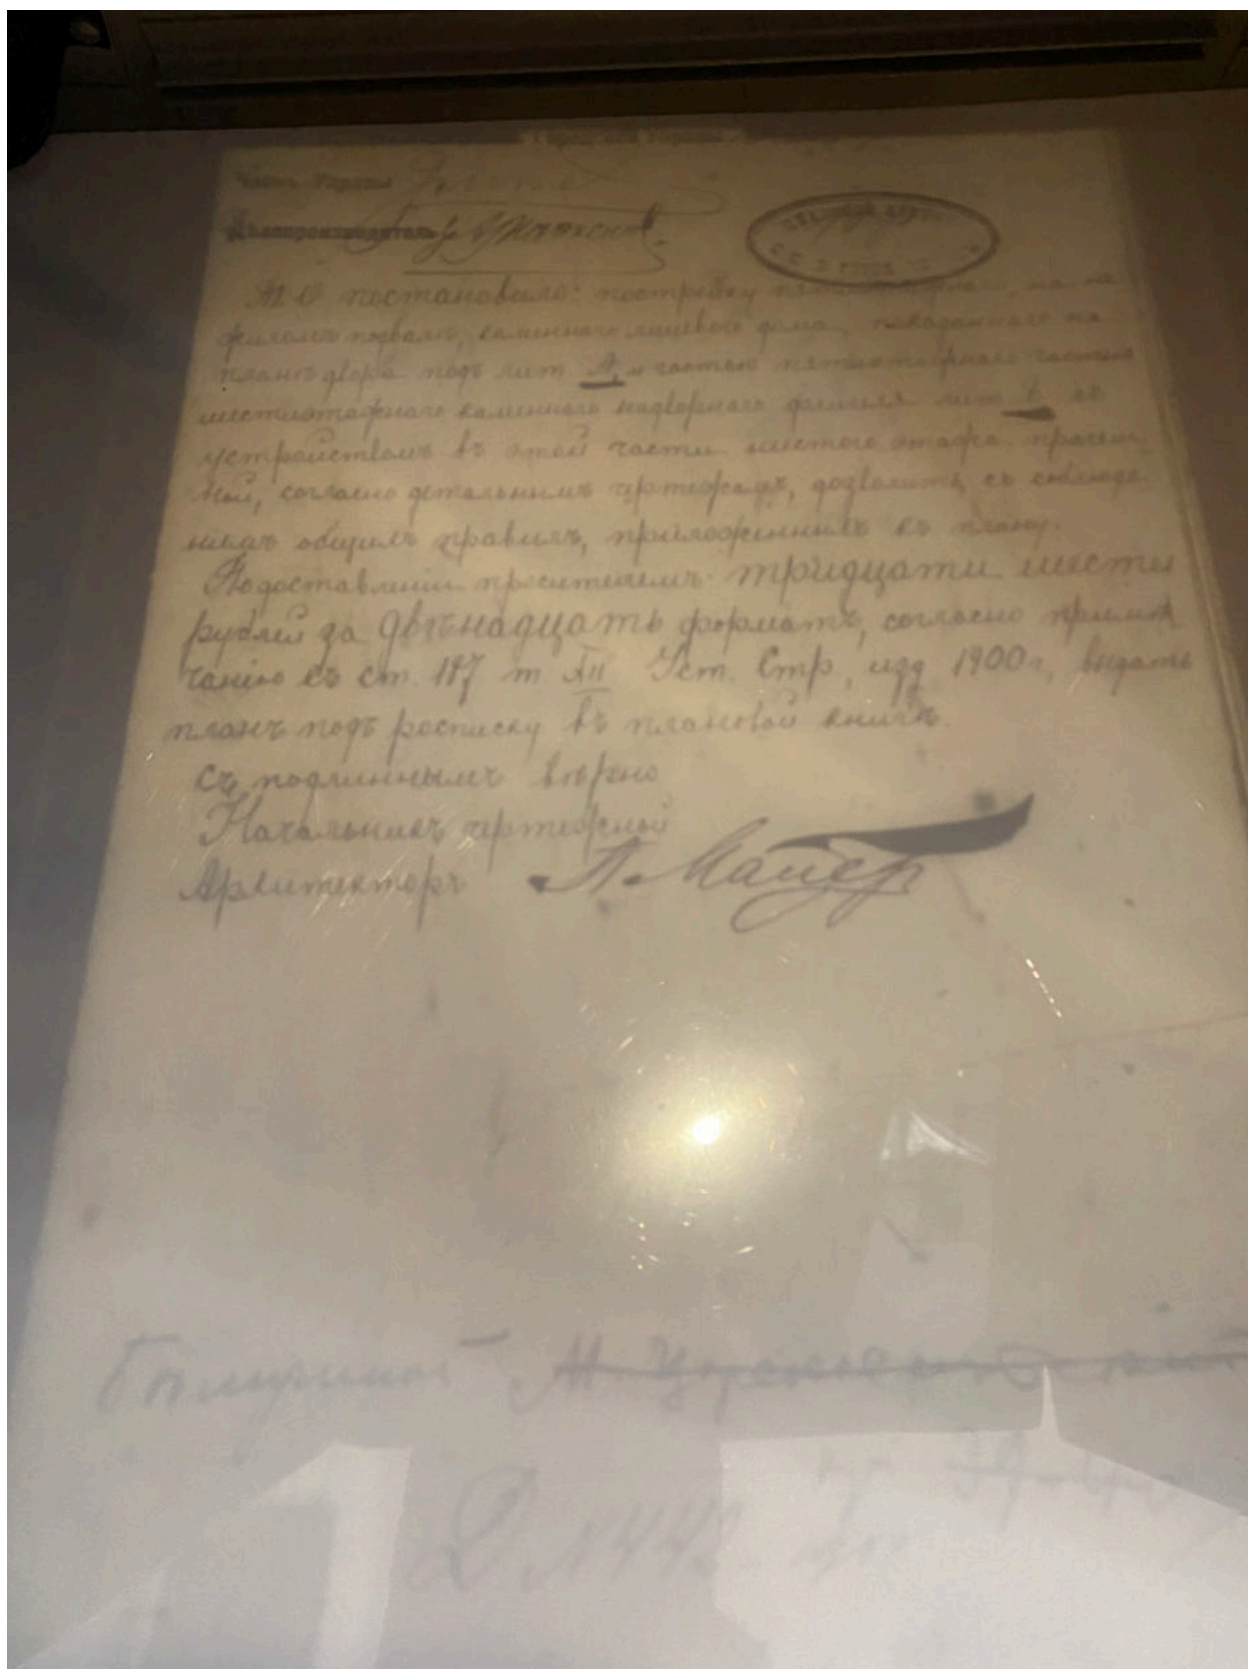 Членъ Управы
Дѣлопроизводитель
М. О. постановило: постройку пятиэтажнаго, на не
жиломъ подвалѣ, каменнаго лицеваго дома, показаннаго на
планѣ двора подъ лит А, и частью пятиэтажнаго частью
шестиэтажнаго каменнаго надворнаго флигеля лит Б съ
устройствомъ въ этой части шестого этажа прачеш
ной, согласно детальнымъ чертежамъ, дозволить, съ соблюде
ніемъ общихъ правилъ, приложенныхъ къ плану.
По доставленіи просителемъ тридцати шести
рублей за двѣнадцать форматъ, согласно примѣ
чанію къ ст. 187 т. XII Уст. Стр, изд 1900 г, выдать
планъ подъ росписку въ плановой книгѣ.
Съ подлиннымъ вѣрно
Начальникъ чертежной
Архитекторъ А. Майеръ